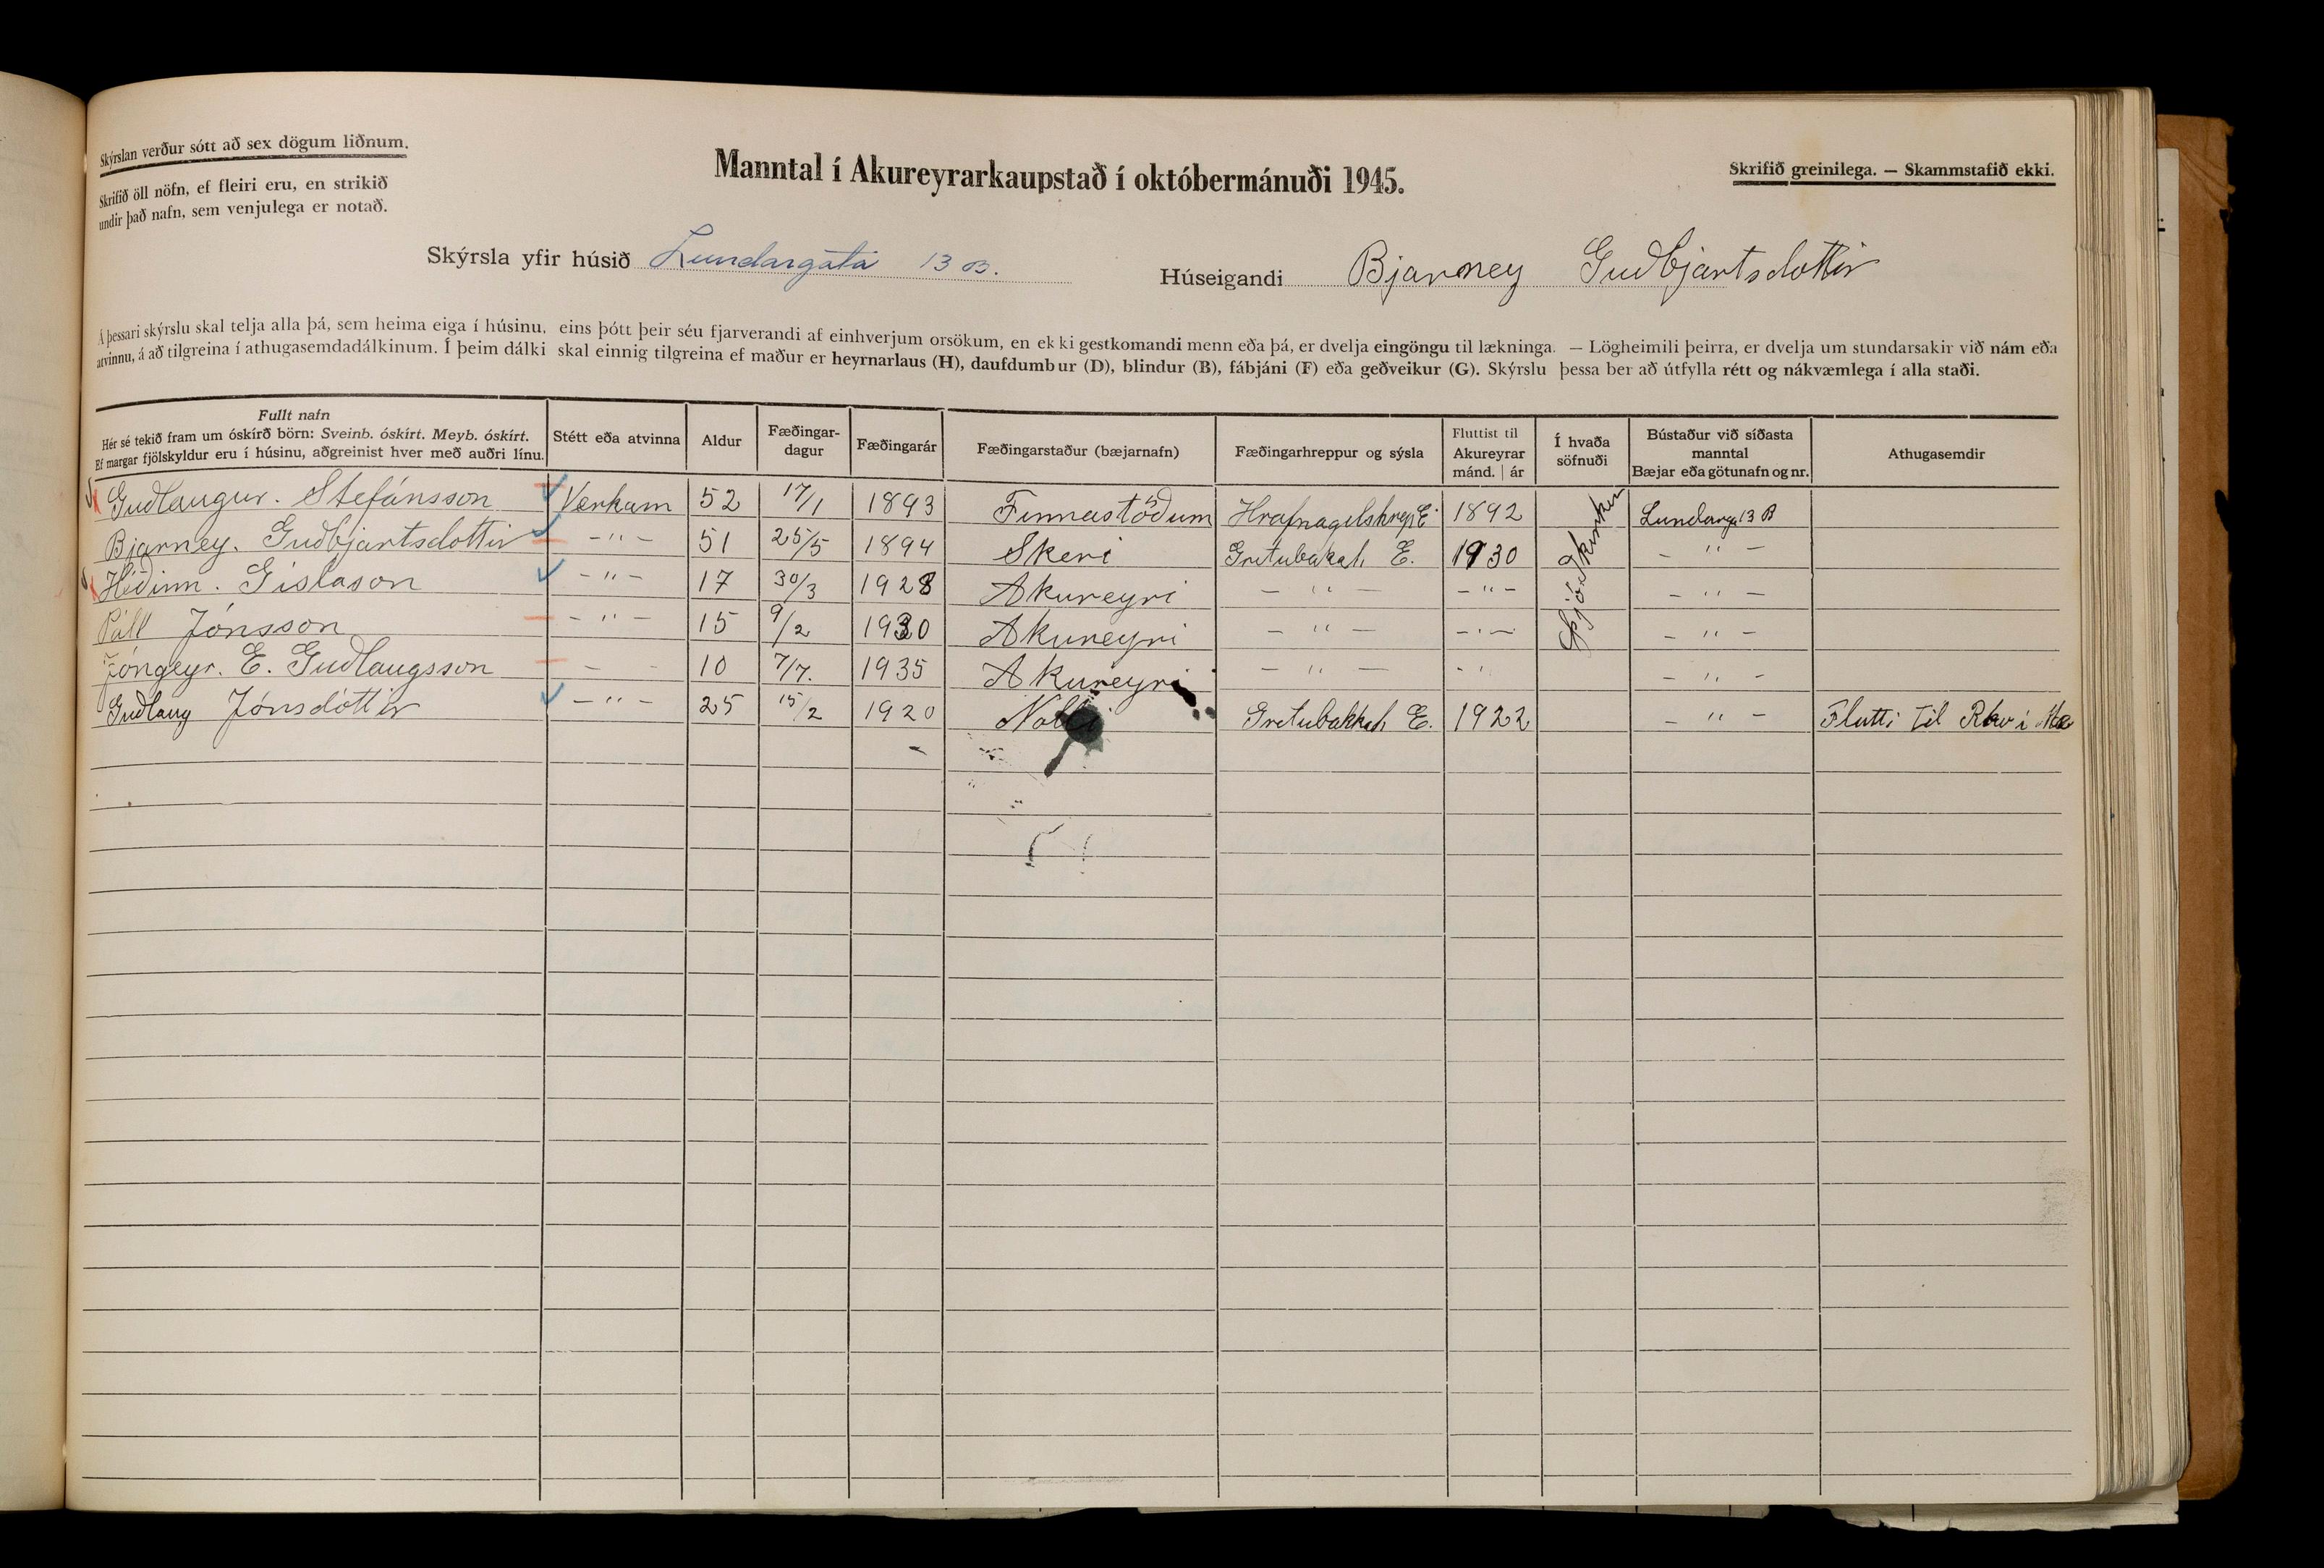 Skýrslan verður sótt að sex dögum liðnum.
Skrifið öll nöfn, ef fleiri eru, en strikið
undir það nafn, sem venjulega er notað.
Manntal í Akureyrarkaupstað í októbermánuði 1945.
Skrifið greinilega. — Skammstafið ekki.
Skýrsla yfir húsið Lundargata 13 B.
Húseigandi Bjarney Guðbjartsdottir
Á þessari skýrslu skal telja alla þá, sem heima eiga í húsinu, eins þótt þeir séu fjarverandi af einhverjum orsökum, en ekki gestkomandi menn eða þá, er dvelja eingöngu til lækninga. — Lögheimili þeirra, er dvelja um stundarsakir við nám eða
atvinnu, á að tilgreina í athugasemdadálkinum. Í þeim dálki skal einnig tilgreina ef maður er heyrnarlaus (H), daufdumbur (D), blindur (B), fábjáni (F) eða geðveikur (G). Skýrslu þessa ber að útfylla rétt og nákvæmlega í alla staði.
Fullt nafn
Hér sé tekið fram um óskírð börn: Sveinb. óskírt. Meyb. óskírt.
Ef margar fjölskyldur eru í húsinu, aðgreinist hver með auðri línu.
Stétt eða atvinna
Aldur
Fæðingar-
dagur
Fæðingarár
Fæðingarstaður (bæjarnafn)
Fæðingarhreppur og sýsla
Fluttist til
Akureyrar
mánd. | ár
Í hvaða
söfnuði
Bústaður við síðasta
manntal
Bæjar eða götunafn og nr.
Athugasemdir
Guðlaugur. Stefánsson Verkam 52 17/1 1893 Finnastöðum Hrafnagilshrep E 1892 Þjóðkirkjan Lundarg 13 B
Bjarney. Guðbjartsdottir — " — 51 25/5 1894 Skeri Gretubakkah E. 1930 — " —
Héðinn. Gislason — " — 17 30/3 1928 Akureyri — " — — " — — " —
Páll Jónsson — " — 15 9/2 1930 Akureyri — " — — " — — " —
Jóngeyr. E. Guðlaugsson — — 10 7/7. 1935 Akureyri — " — — " —
Guðlaug Jónsdóttir — " — 25 15/2 1920 Nolli Gretubakkah E. 1922 — " — Flutti til Rkv i